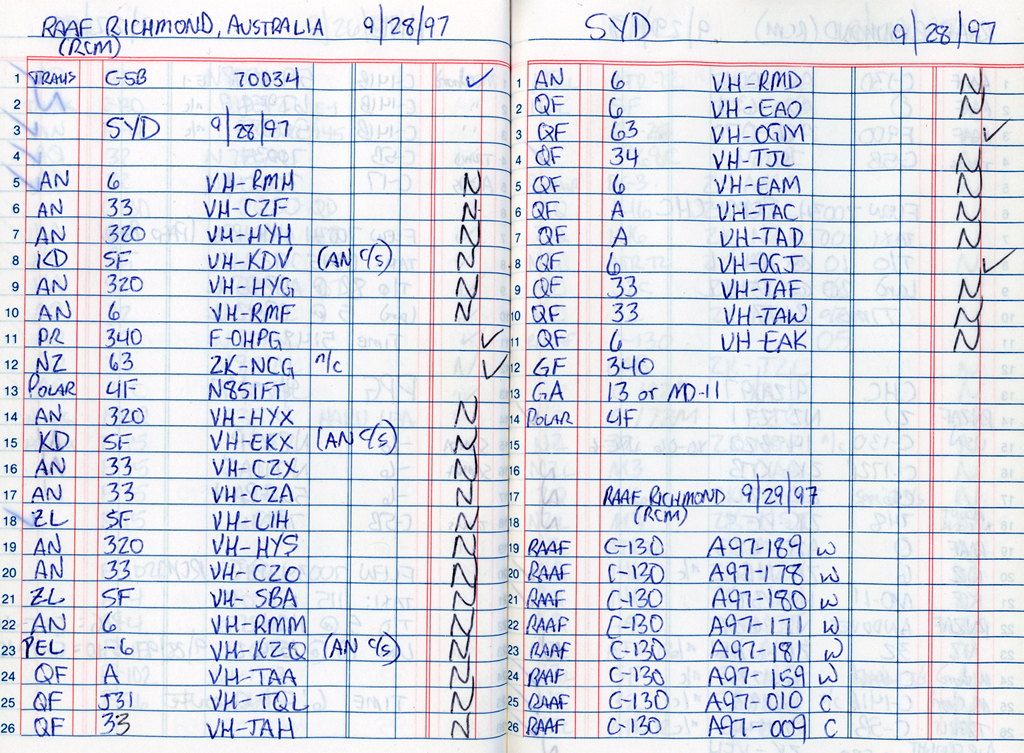 RAAF RICHMOND, AUSTRALIA 9/28/97
(RCM)
1 TRANS C-5B 70034 ✓
2
3 SYD 9/28/97
4
5 AN 6 VH-RMH N
6 AN 33 VH-CZF N
7 AN 320 VH-HYH N
8 KD 5F VH-KDV (AN c/s) N
9 AN 320 VH-HYG N
10 AN 6 VH-RMF N
11 PR 340 F-OHPG ✓
12 NZ 63 ZK-NCG n/c ✓
13 POLAR 4F N851FT
14 AN 320 VH-HYX N
15 KD 5F VH-EKX (AN c/s) N
16 AN 33 VH-CZX N
17 AN 33 VH-CZA N
18 ZL SF VH-LIH N
19 AN 320 VH-HYS N
20 AN 33 VH-CZO N
21 ZL SF VH-SBA N
22 AN 6 VH-RMM N
23 PEL -6 VH-KZQ (AN c/s) N
24 QF A VH-TAA N
25 QF J31 VH-TQL N
26 QF 33 VH-JAH N
SYD 9/28/97
1 AN 6 VH-RMD N
2 QF 6 VH-EAO N
3 QF 63 VH-OGM ✓
4 QF 34 VH-TJL N
5 QF 6 VH-EAM N
6 QF A VH-TAC N
7 QF A VH-TAD N
8 QF 6 VH-OGJ ✓
9 QF 33 VH-TAF N
10 QF 33 VH-TAW N
11 QF 6 VH-EAK N
12 GF 340
13 GA 13 or MD-11
14 POLAR 4F
15
16
17 RAAF RICHMOND 9/29/97
18 (RCM)
19 RAAF C-130 A97-189 W
20 RAAF C-130 A97-178 W
21 RAAF C-130 A97-180 W
22 RAAF C-130 A97-171 W
23 RAAF C-130 A97-181 W
24 RAAF C-130 A97-159 W
25 RAAF C-130 A97-010 C
26 RAAF C-130 A97-009 C